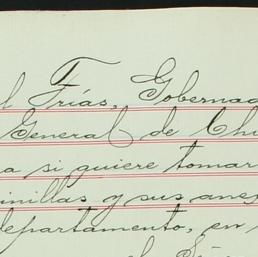 l Frías, Gobernad
General de Chi
a si quiere tomar
inillas y sus ane
departamento, en